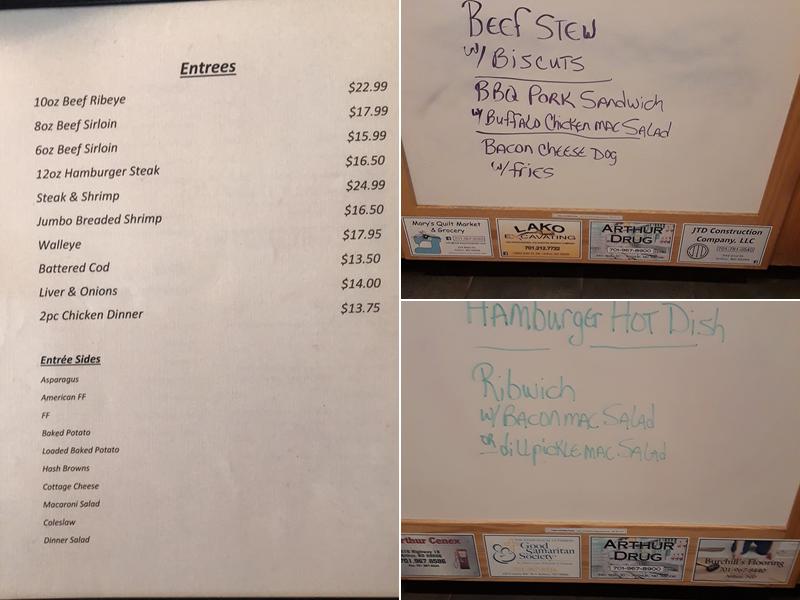 Entrees
10oz Beef Ribeye $22.99
8oz Beef Sirloin $17.99
6oz Beef Sirloin $15.99
12oz Hamburger Steak $16.50
Steak & Shrimp $24.99
Jumbo Breaded Shrimp $16.50
Walleye $17.95
Battered Cod $13.50
Liver & Onions $14.00
2pc Chicken Dinner $13.75
Entrée Sides
Asparagus
American FF
FF
Baked Potato
Loaded Baked Potato
Hash Browns
Cottage Cheese
Macaroni Salad
Coleslaw
Dinner Salad
Beef Stew
w/ Biscuts
BBQ Pork Sandwich
w/ Buffalo Chicken mac Salad
Bacon Cheese Dog
w/ fries
Mary's Quilt Market
& Grocery
LAKO
EXCAVATING
701.212.7722
ARTHUR
DRUG
701-967-8900
JTD Construction
Company, LLC
Hamburger Hot Dish
Ribwich
w/ Bacon mac Salad
or dill pickle mac Salad
Arthur Cenex
701.967.8586
Good
Samaritan
Society
ARTHUR
DRUG
701-967-8900
Burchill's Flooring
701-967-8440